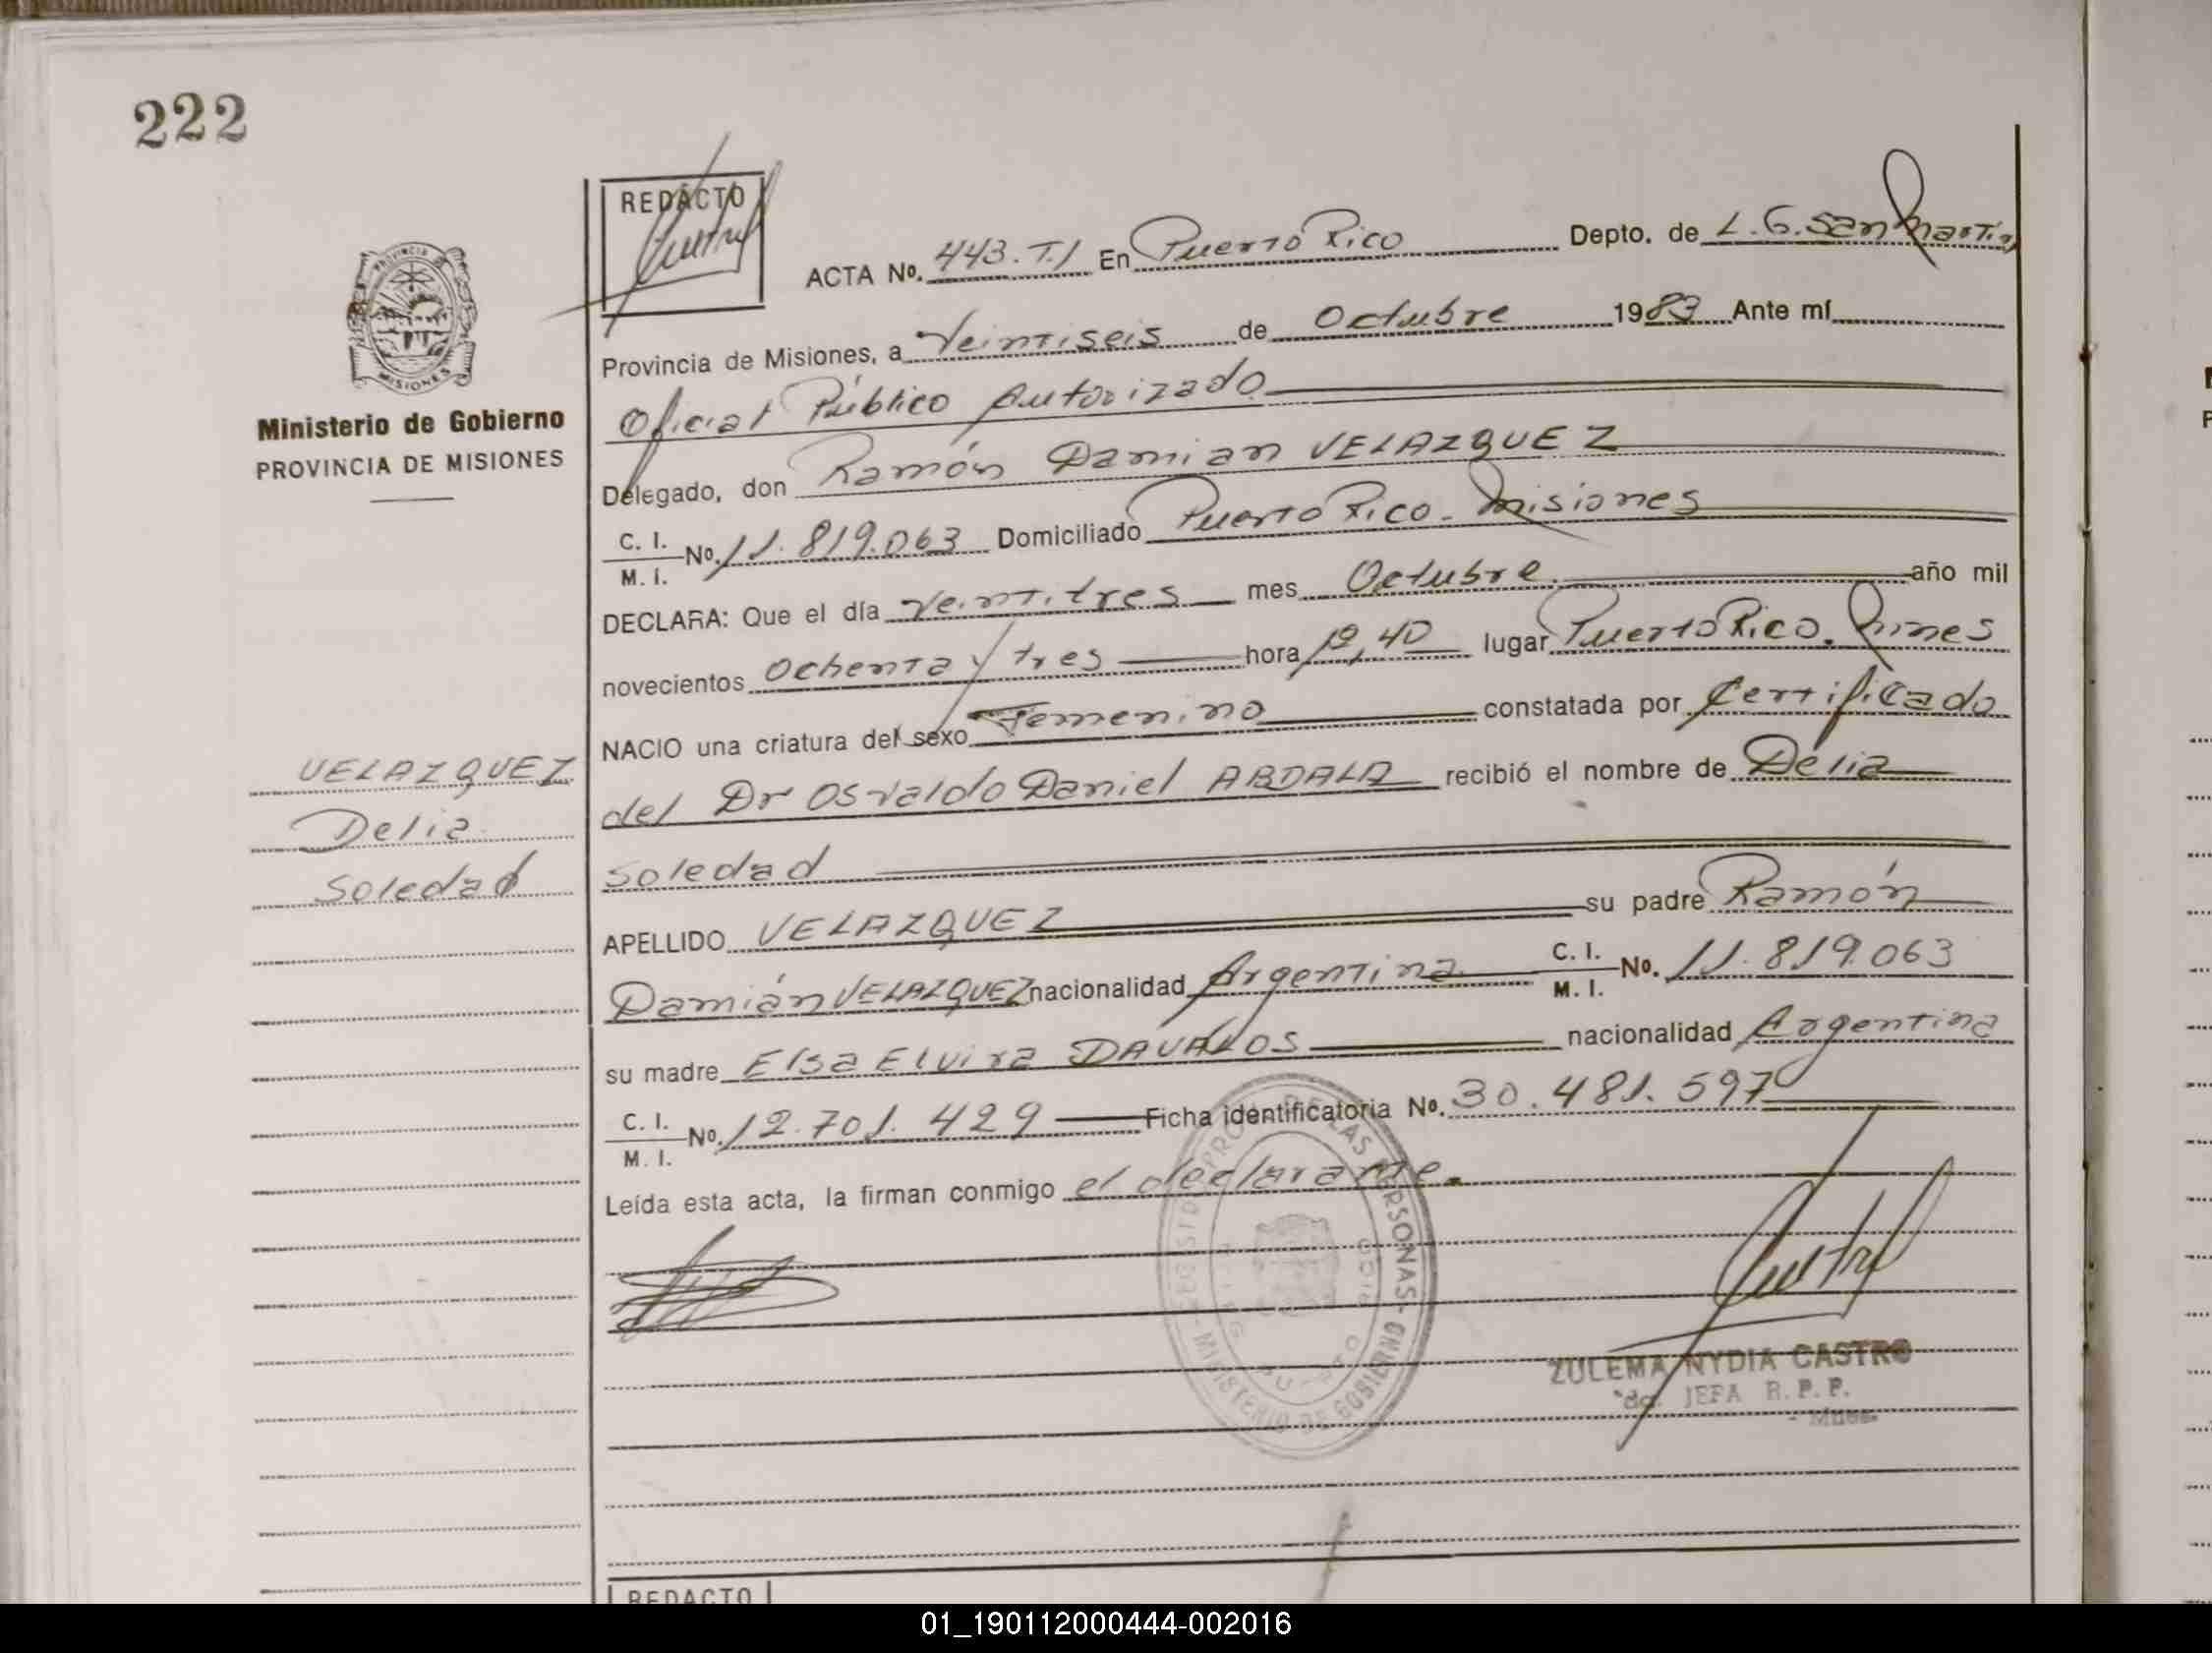 222
REDACTO
ACTA No. 443.T.I En Puerto Rico Depto. de L.G.San Martin
Provincia de Misiones, a Veintiseis de Octubre 1983 Ante mí
Oficial Público Autorizado
Delegado, don Ramón Damian VELAZQUEZ
C. I.
M. I. No. 11.819.063 Domiciliado Puerto Rico - Misiones
DECLARA: Que el día veintitres mes Octubre año mil
novecientos Ochenta y tres hora 12,40 lugar Puerto Rico. Mnes
NACIO una criatura del sexo Femenino constatada por Certificado
del Dr Osvaldo Daniel ABDALA recibió el nombre de Delia
Soledad
APELLIDO VELAZQUEZ su padre Ramón
Damián VELAZQUEZ nacionalidad Argentina C. I.
M. I. No. 11.819.063
su madre Elsa Elvira DAVALOS nacionalidad Argentina
C. I.
M. I. No. 12.701.429 Ficha identificatoria No. 30.481.597
Leída esta acta, la firman conmigo el declarante.
PROVINCIA
MISIONES
Ministerio de Gobierno
PROVINCIA DE MISIONES
VELAZQUEZ
Delia
Soledad
DE LAS PERSONAS - MINISTERIO DE GOBIERNO
ZULEMA NYDIA CASTRO
JEFA R. P. P.
- Mnes.
REDACTO
01_190112000444-002016